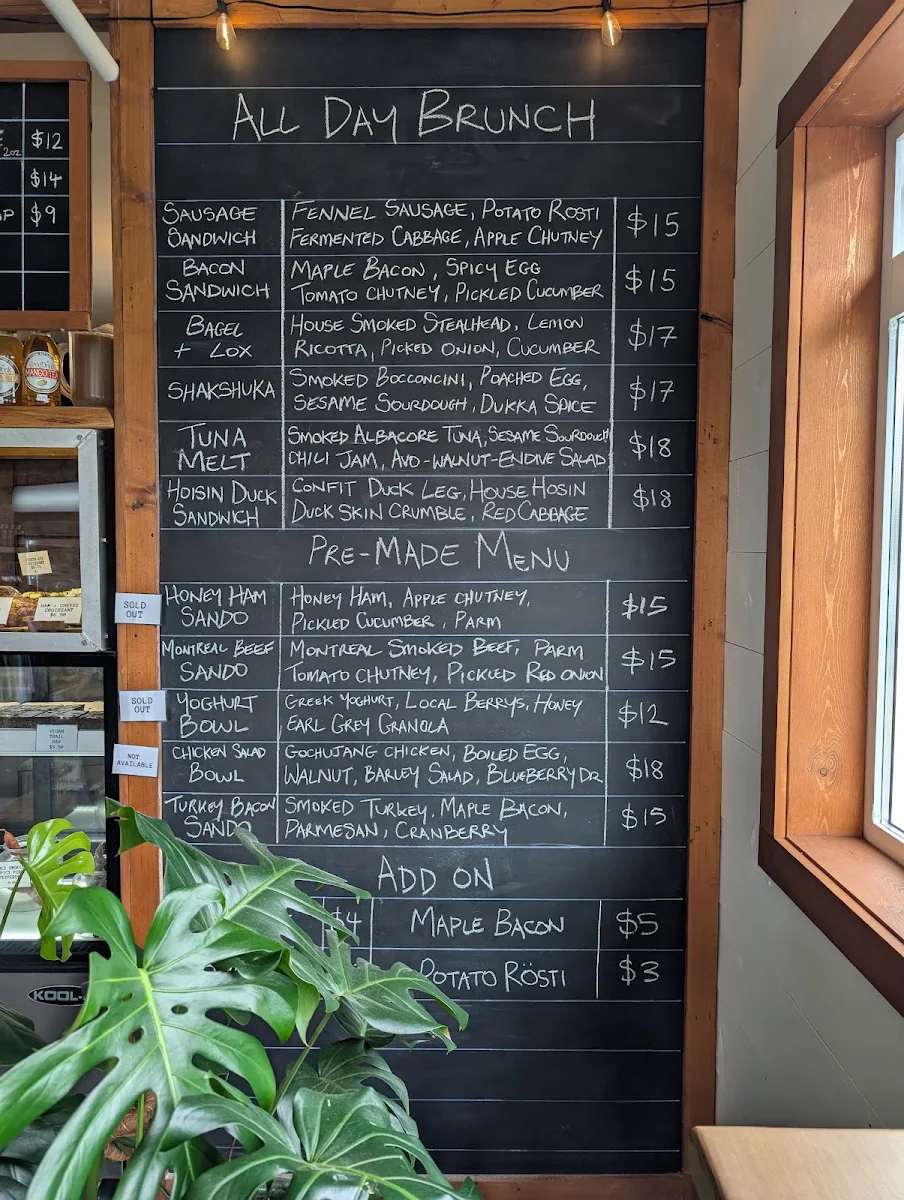 ALL DAY BRUNCH
SAUSAGE SANDWICH
FENNEL SAUSAGE, POTATO ROSTI
FERMENTED CABBAGE, APPLE CHUTNEY
$15
BACON SANDWICH
MAPLE BACON, SPICY EGG
TOMATO CHUTNEY, PICKLED CUCUMBER
$15
BAGEL + LOX
HOUSE SMOKED STEALHEAD, LEMON
RICOTTA, PICKED ONION, CUCUMBER
$17
SHAKSHUKA
SMOKED BOCCONCINI, POACHED EGG,
SESAME SOURDOUGH, DUKKA SPICE
$17
TUNA MELT
SMOKED ALBACORE TUNA, SESAME SOURDOUGH
CHILI JAM, AVO-WALNUT-ENDIVE SALAD
$18
HOISIN DUCK SANDWICH
CONFIT DUCK LEG, HOUSE HOSIN
DUCK SKIN CRUMBLE, RED CABBAGE
$18
PRE-MADE MENU
SOLD OUT
HONEY HAM SANDO
HONEY HAM, APPLE CHUTNEY,
PICKLED CUCUMBER, PARM
$15
MONTREAL BEEF SANDO
MONTREAL SMOKED BEEF, PARM
TOMATO CHUTNEY, PICKLED RED ONION
$15
SOLD OUT
YOGHURT BOWL
GREEK YOGHURT, LOCAL BERRYS, HONEY
EARL GREY GRANOLA
$12
NOT AVAILABLE
CHICKEN SALAD BOWL
GOCHUJANG CHICKEN, BOILED EGG,
WALNUT, BARLEY SALAD, BLUEBERRY DR
$18
TURKEY BACON SANDO
SMOKED TURKEY, MAPLE BACON,
PARMESAN, CRANBERRY
$15
ADD ON
$4
MAPLE BACON $5
POTATO RÖSTI $3
2oz $12
$14
$9
MANGO TE
HAM + CHEESE
CROISSANT
$6.50
VEGAN
TRAIL
BAR
$5.50
KOOL-